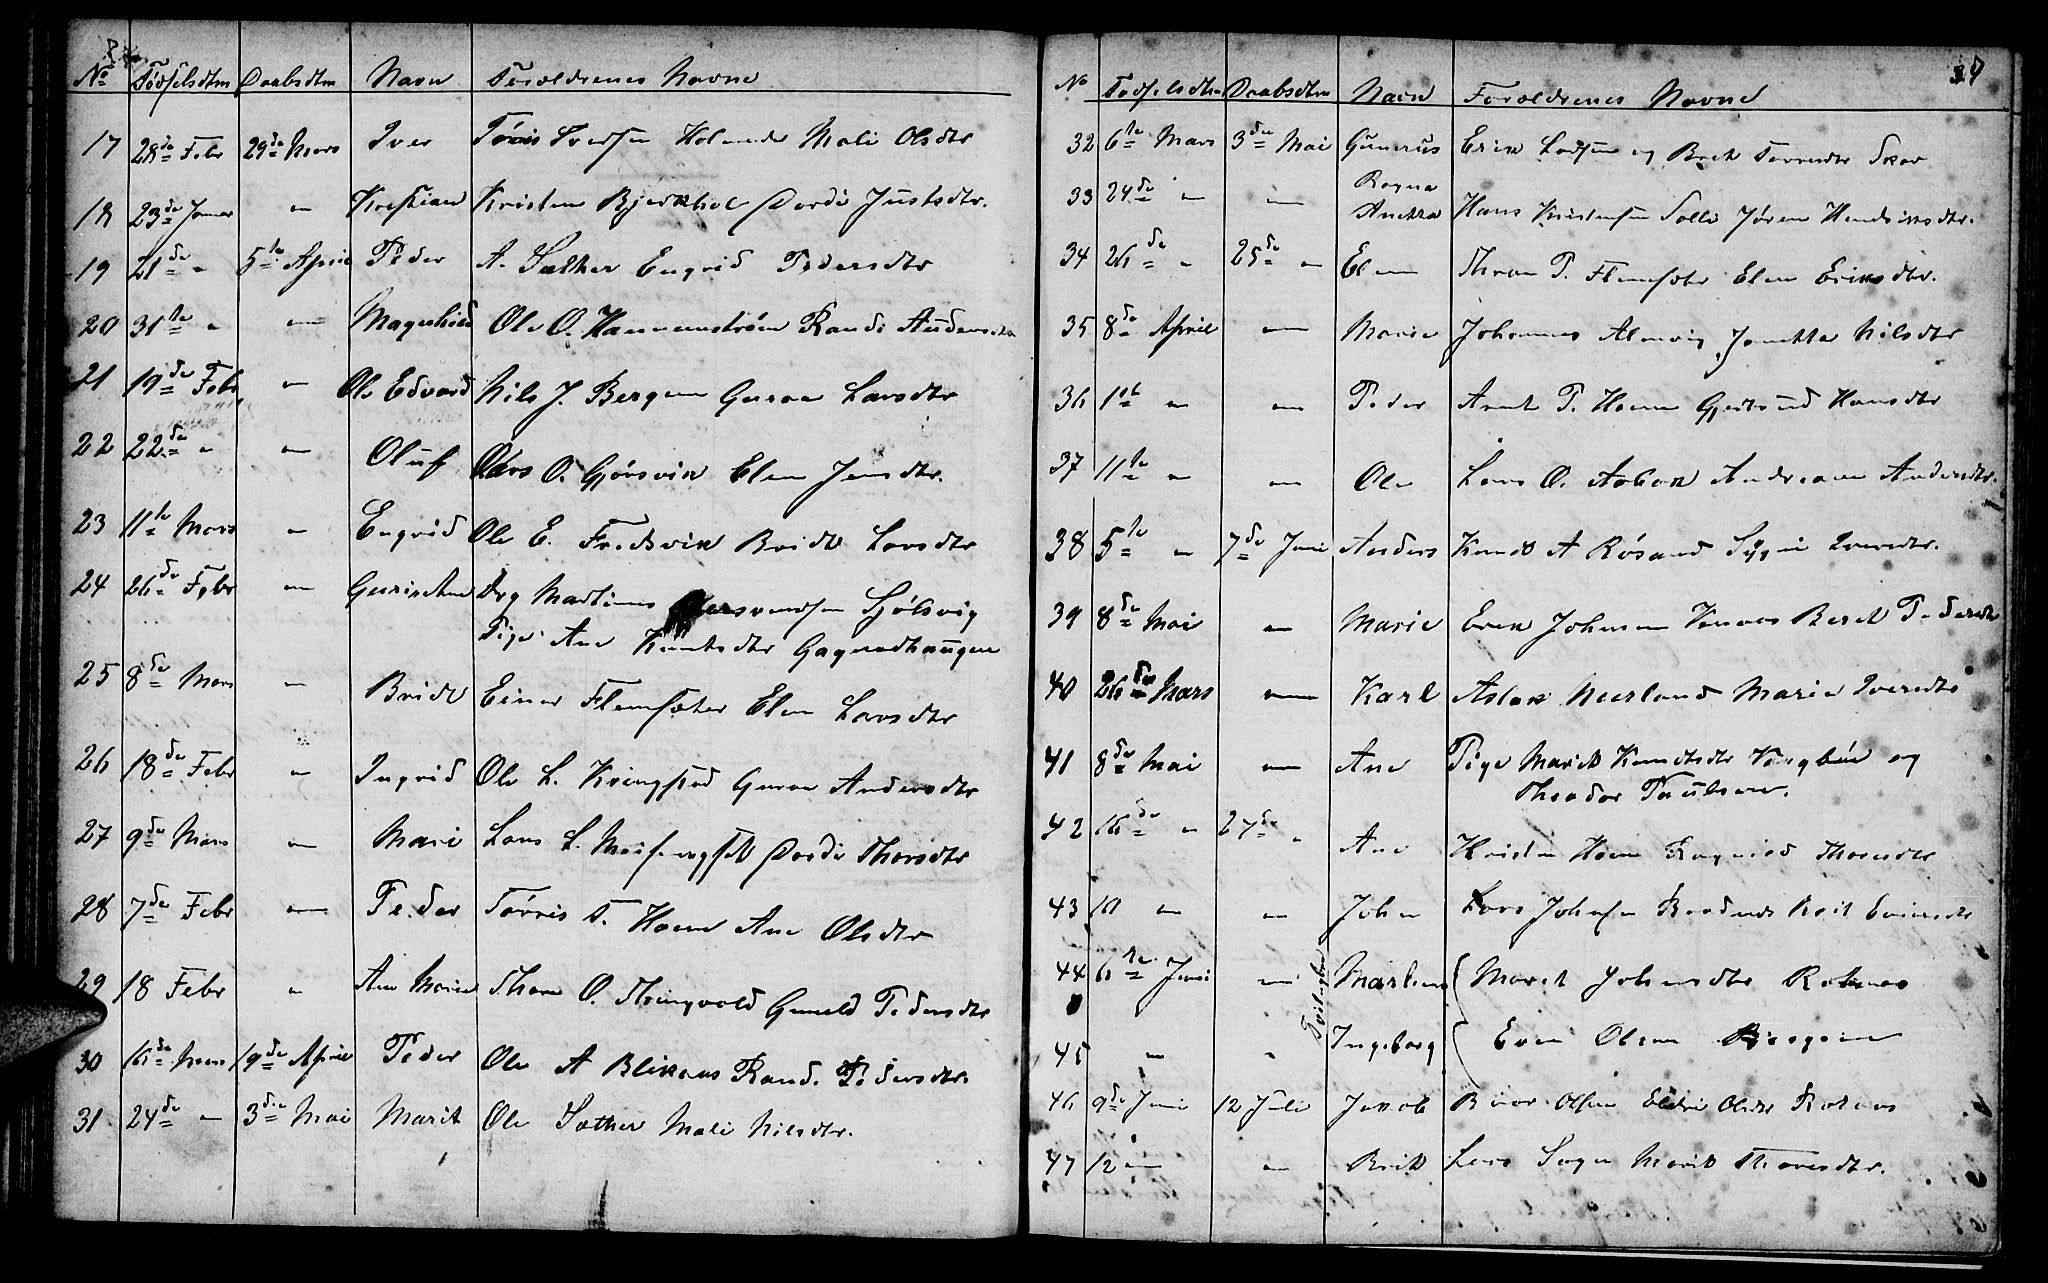 No Fødselsdtm Daabsdtm Navn Forældrenes Navne
17 28de Febr 29de Mars Iver Tørris Iversen Holmede Mali Olsdtr
18 23de Januar " Kristian Kristen Bjerkelie Dordi Justsdtr.
19 21de " 5te April Peder A. Sæther Engrid Pedersdtr
20 31te " " Magnhild Ole O. Hammerstrøm Randi Andersdtr
21 19de Febr " Ole Edvard Nils J. Bergem Guroe Larsdtr
22 22de " " Oluf Lars O. Gjørsvik Elen Jensdtr.
23 11te Mars " Engrid Ole E. Fredsvik Bridt Larsdtr
24 26de Febr " Guri Ane Ung Martines Sjølsvig
Pige Ane Knutsdtr Gagnadhaugen
25 8de Mars " Bridt Einar Flemsæter Elen Larsdtr
26 18de Febr " Ingrid Ole L. Kringstad Guroe Andersdtr
27 9de Mars " Mari Lars L. Meisingset Dordi Thorsdtr
28 7de Febr " Peder Tørris T. Hoem Ane Olsdtr
29 18 Febr " Ane Marie Thore O. Thringvold Gunild Pedersdtr
30 16de Mars 19de April Peder Ole A Blikaas Randi Pedersdtr.
31 24de " 3die Mai Marit Ole Sæther Mali Nilsdtr.
37
No Fødselsdtm Daabsdtm Navn Forældrenes Navne
32 6te Mars 3die Mai Gunerus Erik Ladsen og Brit Torresdtr Skar
33 24de " " Ragna
Anetta Hans Kristensen Solli Jøren Hendriksdtr.
34 26de " 25de " Elen Thron P. Flemsæter Elen Eriksdtr.
35 8de April " Marie Johannes Alnevig, Janetta Nilsdtr
36 1ste " " Peder Arnt P. Hoem Gjertrud Hansdtr
37 11te " " Ole Lars O. Aabak Andreane Andersdtr.
38 5te " 7de Juni Anders Knudt A Røsand Siggni Iversdtr.
39 8de Mai " Marie Erek Johnsen Beret Pedersdtr
40 26de Mars " Karl Aslak Neerland Marie Iversdtr
41 8de Mai " Ane Pige Marit Knudtsdtr Vangbøe og
Theodor Paulsen.
42 16de " 27de " Ane Kristen Hoem Ragnild Thoresdtr
43 10 " " John Lars Johnsen Brit Eriksdtr
44 6te Juni " Tvilingbør Marlene Marit Johnsdtr Roknas
45 " " Ingeborg Even Olsen Bergem
46 9de Juni 12 Juli Jakob Roar Olsen Eldri Olsdtr Roknas
47 12 " " Brit Lars Sagen Marit Thoresdtr.